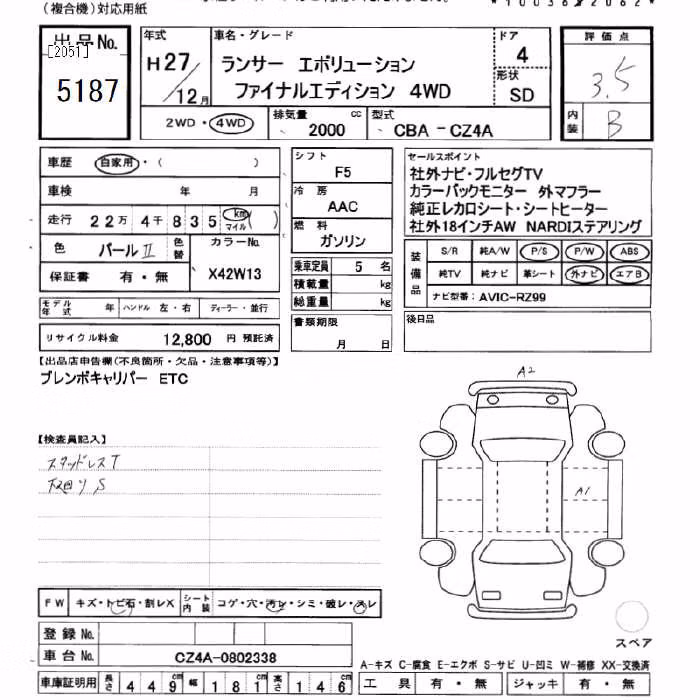 (複合機)対応用紙
出品No.
[2051]
5187
年式
H27/12月
車名・グレード
ランサー エボリューション
ファイナルエディション 4WD
ドア
4
形状
SD
評価点
3.5
内装
B
2WD・4WD
排気量 cc
2000
型式
CBA-CZ4A
車歴 自家用・( )
車検 年 月
走行 22万 4千835 km マイル ( )
色 パールⅡ 色替
カラーNo.
X42W13
保証書 有・無
モデル年式 年 ハンドル 左・右 ディーラー・並行
リサイクル料金 12,800 円 預託済
シフト
F5
冷房
AAC
燃料
ガソリン
乗車定員 5 名
積載量 kg
総重量 kg
書類期限
月 日
セールスポイント
社外ナビ・フルセグTV
カラーバックモニター 外マフラー
純正レカロシート・シートヒーター
社外18インチAW NARDIステアリング
装備品
S/R 純A/W P/S P/W ABS
純TV 純ナビ 革シート 外ナビ エアB
ナビ型番: AVIC-RZ99
後日品
【出品店申告欄(不良箇所・欠品・注意事項等)】
ブレンボキャリパー ETC
【検査員記入】
スタッドレスT
下廻りS
A2
A1
スペア
FW キズ・トビ石・割レX シート内装 コゲ・穴・汚レ・シミ・破レ・スレ
登録No.
車台No. CZ4A-0802338
車庫証明用 長さ 449cm 幅 181cm 高さ 146cm
A-キズ C-腐食 E-エクボ S-サビ U-凹ミ W-補修 XX-交換済
工具 有・無 ジャッキ 有・無